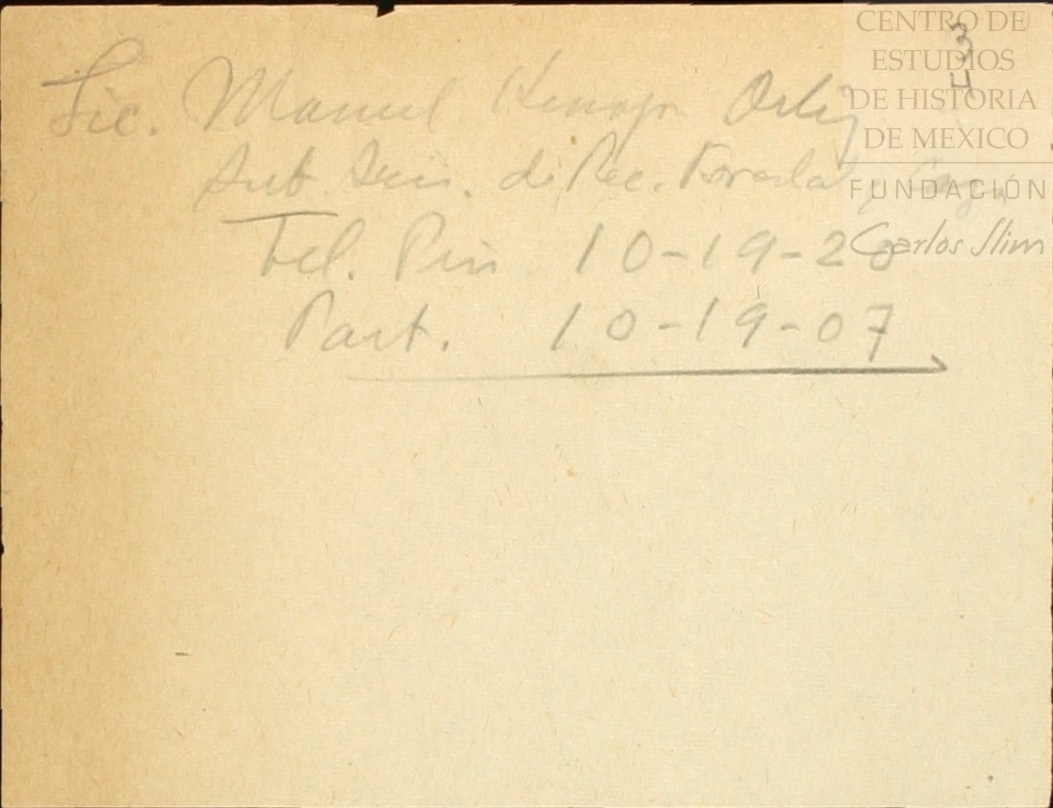 CENTRO DE
ESTUDIOS
DE HISTORIA
DE MEXICO
FUNDACIÓN
Carlos Slim
3
4
Lic. Manuel Hinojosa Ortiz
Sub. de Rec. Forestal y Caza
Tel. Pin 10-19-28
Part. 10-19-07